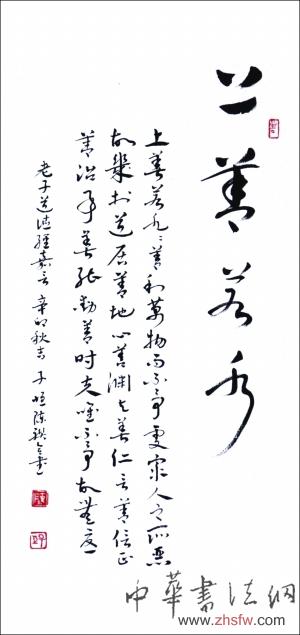 上善若水
上善若水〻善利萬物而不爭處衆人之所惡
故幾於道居善地心善渊与善仁言善信正
善治事善能動善時夫唯不爭故無尤
老子道德經嘉言 辛卯秋吉 子恒陳書
中華書法網
www.zhsfw.com